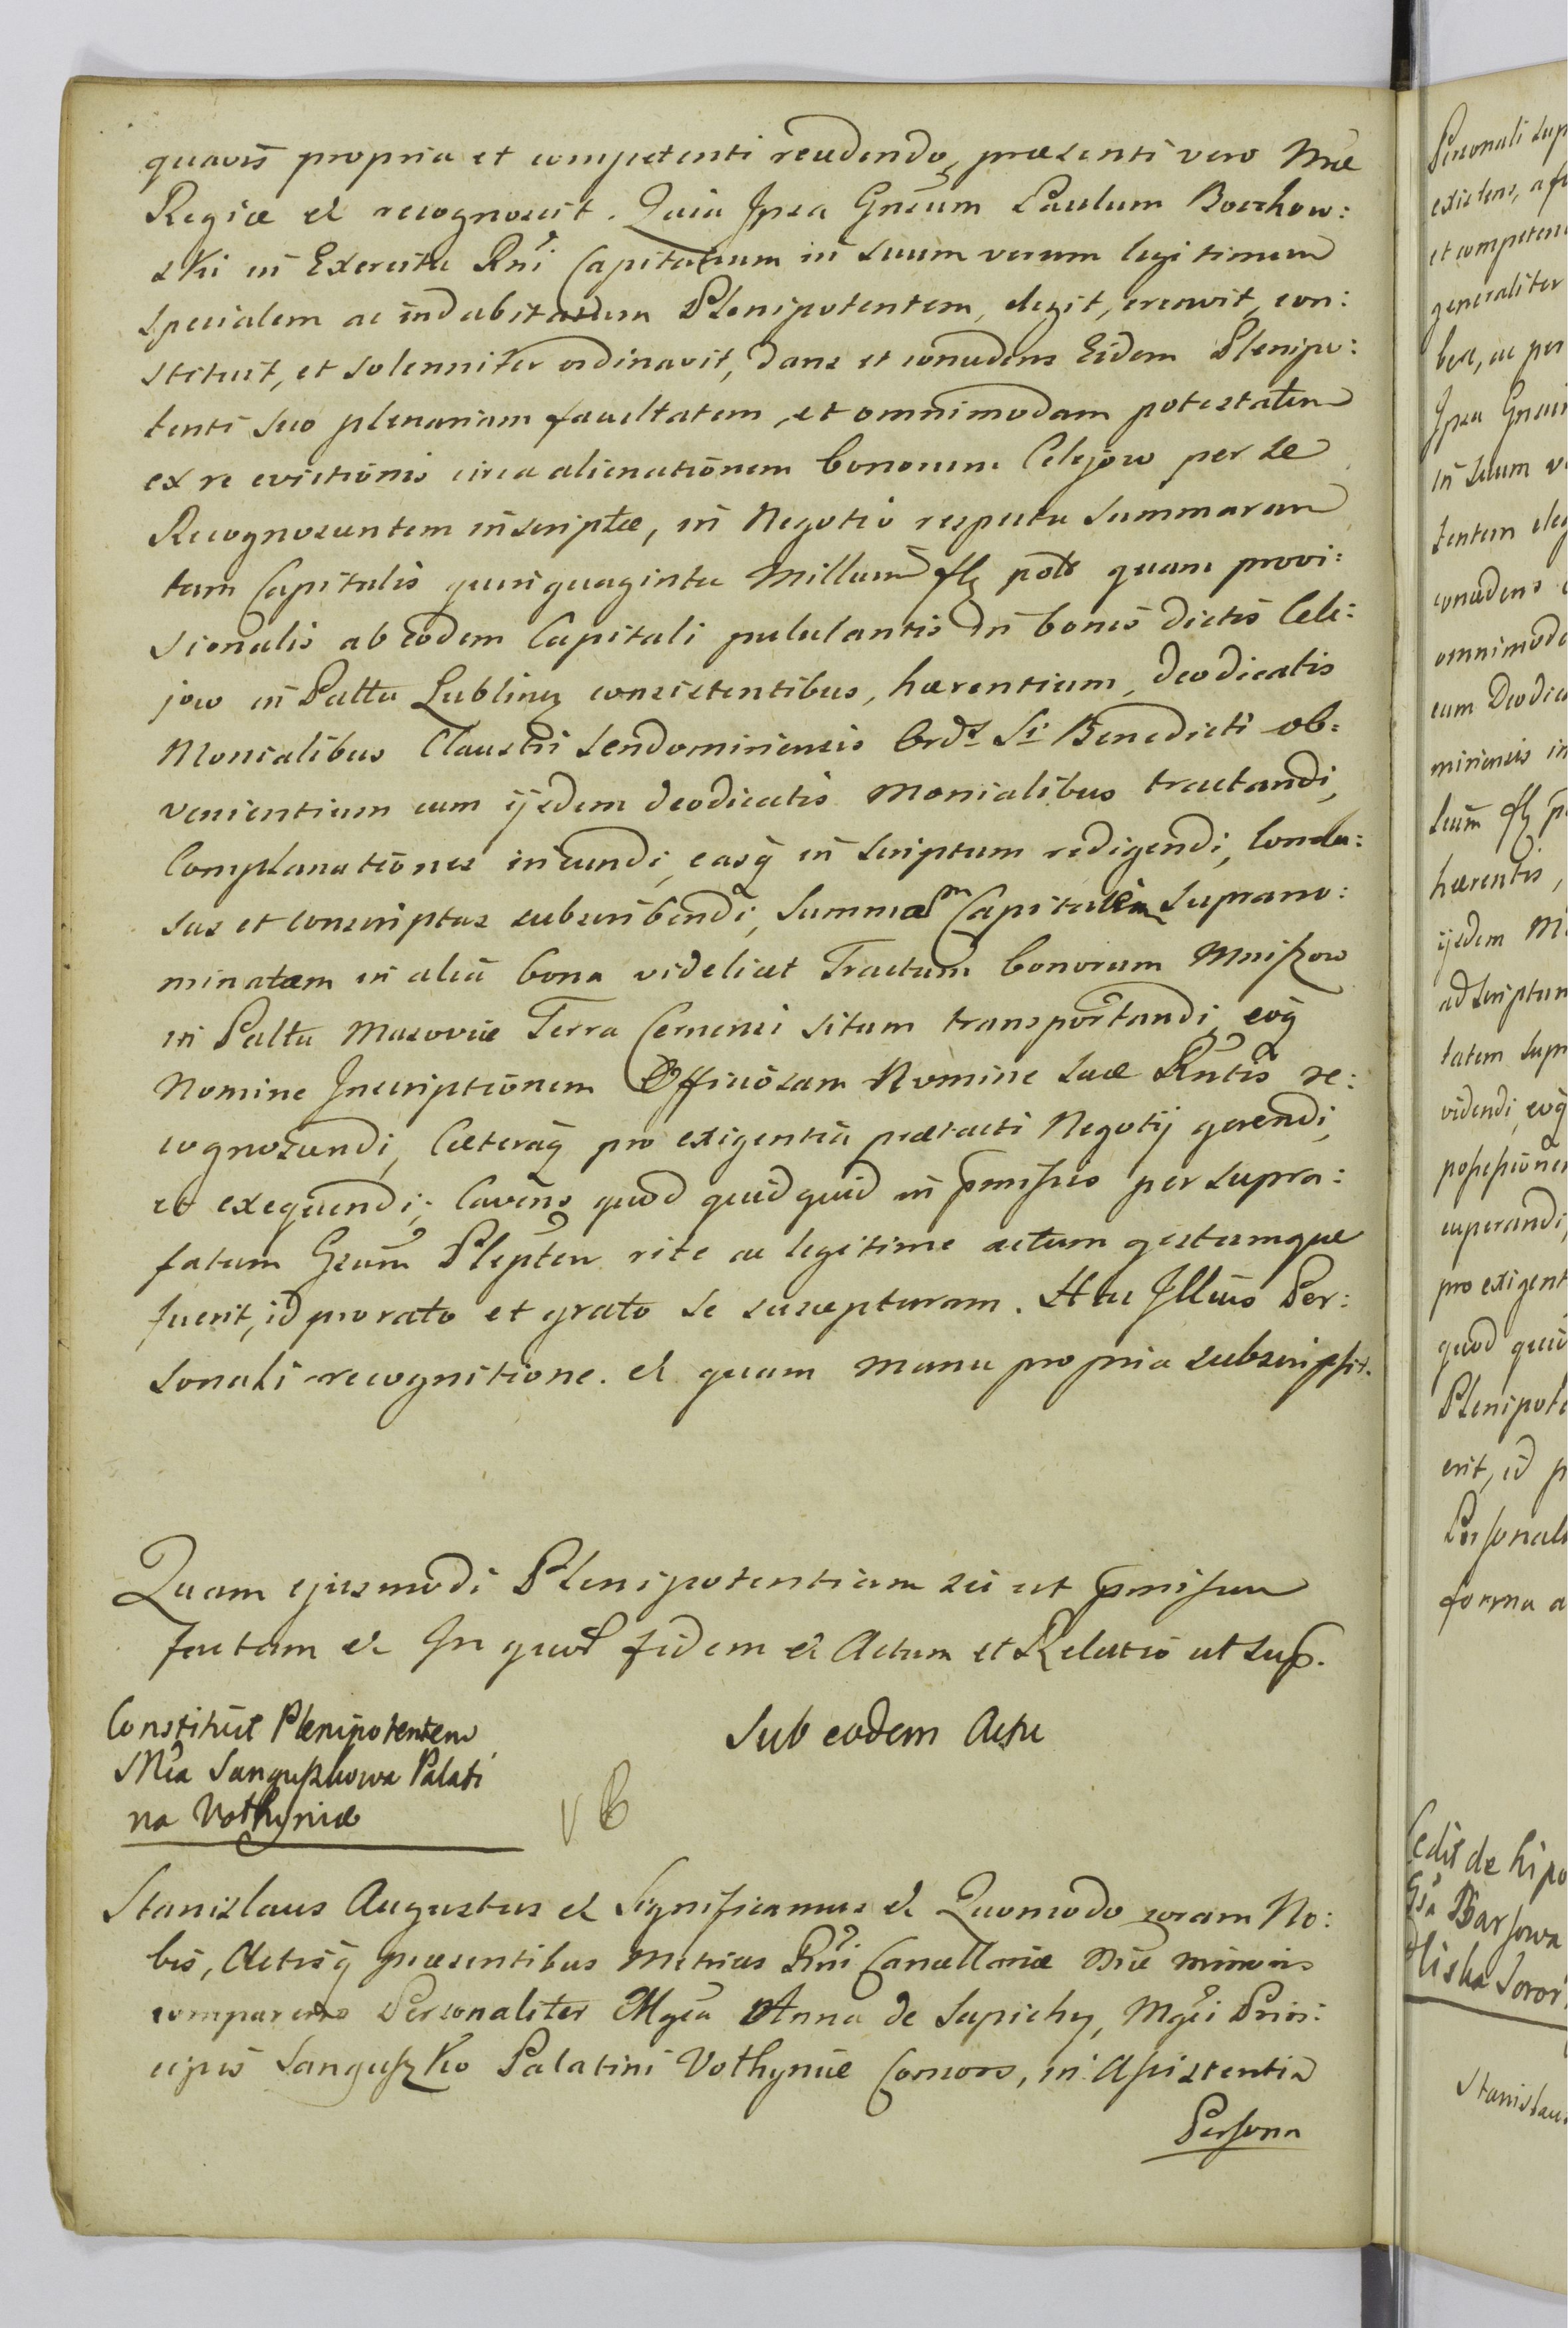 quavis propria et competenti recedendo, præsenti vero Mtæ
Regiæ et recognovit. Quia Ipsa Gnsum Paulum Borzkow:
ski in Exercitu Rni Capitaneum in suum verum legitimum
specialem ac indubitatum Plenipotentem, elegit, creavit, con:
stituit, et solenniter ordinavit, dans et concedens Eidem Plenipo:
tenti suo plenariam facultatem, et omnimodam potestatem
ex re evictionis circa alienationem bonorum Celejow per se
Recognoscentem inscriptæ, in Negotio respectu summarum
tam Capitalis quinquaginta Millium fl polo quam provi:
sionalis ab eodem Capitali pululantis in bonis dictis Cele:
jow in Palttu Lublinen consistentibus, hærentium, deodicatis
Monialibus Claustri Sendomiriensis Ords Si Benedicti ob:
venientium cum ijsdem deodicatis Monialibus tractandi,
Complanationes ineundi, easq in scriptum redigendi, conclu:
sas et conscriptas subscribendi, summam Capitalem suprano:
minatam in alia bona videlicet Tractum bonorum Mniszow
in Palttu Masoviæ Terra Cernensi situm transportandi, eoq
Nomine Inscriptionem Officiosam Nomine suæ Rntis re:
cognoscendi, Cæteraq pro exigentia prætacti Negotij gerendi,
et exequendi; Cavens quod quidquid in pmissis per supra:
fatum Gsum Plnpttem rite ac legitime actum gestumque
fuerit, id pro rato et grato se suscepturam. Hac Illius Per:
sonali recognitione. et quam manu propria subscripsit.
Quam ejusmodi Plenipotentiam sic ut pmissum
factam et In quor fidem et Actum et Relatio ut sup.
Constituit Plenipotentem
Mca Sanguszkowa Palati
na Volhyniæ
Sub eodem Actu
Stanislaus Augustus et Significamus et Quomodo coram No:
bis, Actisq præsentibus Metrices Rni Cancellariæ Nræ minoris
comparens Personaliter Mgca Anna de Sapiehy, Mgci Prin:
cipis Sanguszko Palatini Volhyniæ Consors, in Assistentia
Persona
Personali sup
existens, a f
et competen
generaliter
bere, ac per
Ipsa Gnsum
in suum v
tentem eleg
concedens
omnimoda
cum Deodica
miriensis in
lium fl p
hærentis,
ijsdem M
ad scriptum
tatem supr
videndi, eoq
possessionem
cuperandi,
pro exigent
quod quid
Plenipote
erit, id p
Personali
forma a
Cedit de hipo
Gsa Barsowa
liska Soror
Stanislau